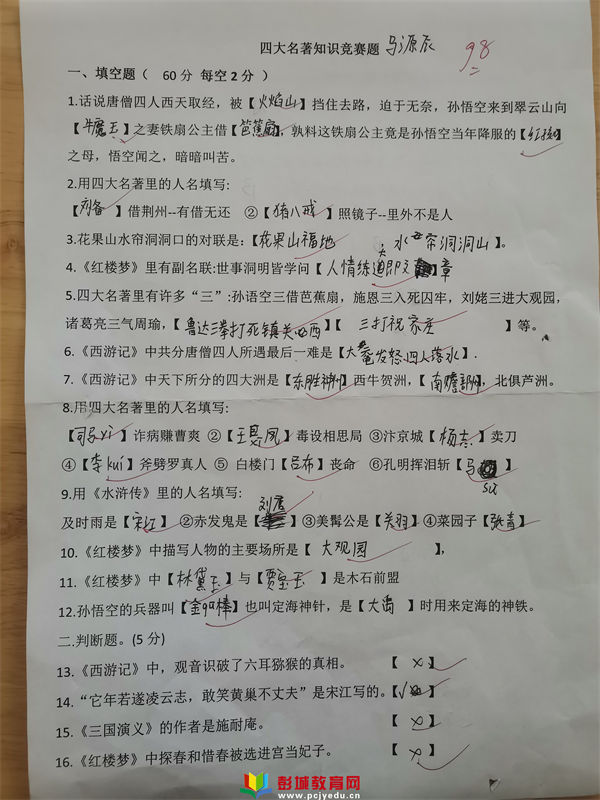 四大名著知识竞赛题 马源辰 98
一、填空题（ 60分 每空2分 ）
1.话说唐僧四人西天取经，被【火焰山】挡住去路，迫于无奈，孙悟空来到翠云山向
【牛魔王】之妻铁扇公主借【芭蕉扇】，孰料这铁扇公主竟是孙悟空当年降服的【红孩儿】
之母，悟空闻之，暗暗叫苦。
2.用四大名著里的人名填写:
【刘备】借荆州--有借无还 ②【猪八戒】照镜子--里外不是人
3.花果山水帘洞洞口的对联是:【花果山福地 水帘洞洞山】。
4.《红楼梦》里有副名联:世事洞明皆学问【人情练达即文】章
5.四大名著里有许多“三”:孙悟空三借芭蕉扇，施恩三入死囚牢，刘姥三进大观园，
诸葛亮三气周瑜，【鲁达三拳打死镇关西】【 三打祝家庄 】等。
6.《西游记》中共分唐僧四人所遇最后一难是【大鼋发怒四人落水】.
7.《西游记》中天下所分的四大洲是【东胜神州】西牛贺洲，【南赡部州】，北俱芦洲。
8.用四大名著里的人名填写:
【司马yi】诈病赚曹爽 ②【王熙凤】毒设相思局 ③汴京城【杨志】卖刀
④【李kui】斧劈罗真人 ⑤ 白楼门【吕布】丧命 ⑥孔明挥泪斩【马su】
9.用《水浒传》里的人名填写:
及时雨是【宋江】 ②赤发鬼是【刘唐】③美髯公是【关羽】④菜园子【张青】
10.《红楼梦》中描写人物的主要场所是【 大观园 】，
11.《红楼梦》中【林黛玉】与【贾宝玉】是木石前盟
12.孙悟空的兵器叫【金gu棒】也叫定海神针，是【大禹】时用来定海的神铁。
二.判断题。(5分)
13.《西游记》中，观音识破了六耳猕猴的真相。 【 × 】
14.“它年若遂凌云志，敢笑黄巢不丈夫”是宋江写的。【√】
15.《三国演义》的作者是施耐庵。 【 × 】
16.《红楼梦》中探春和惜春被选进宫当妃子。 【 × 】
彭城教育网
www.pcjyedu.cn